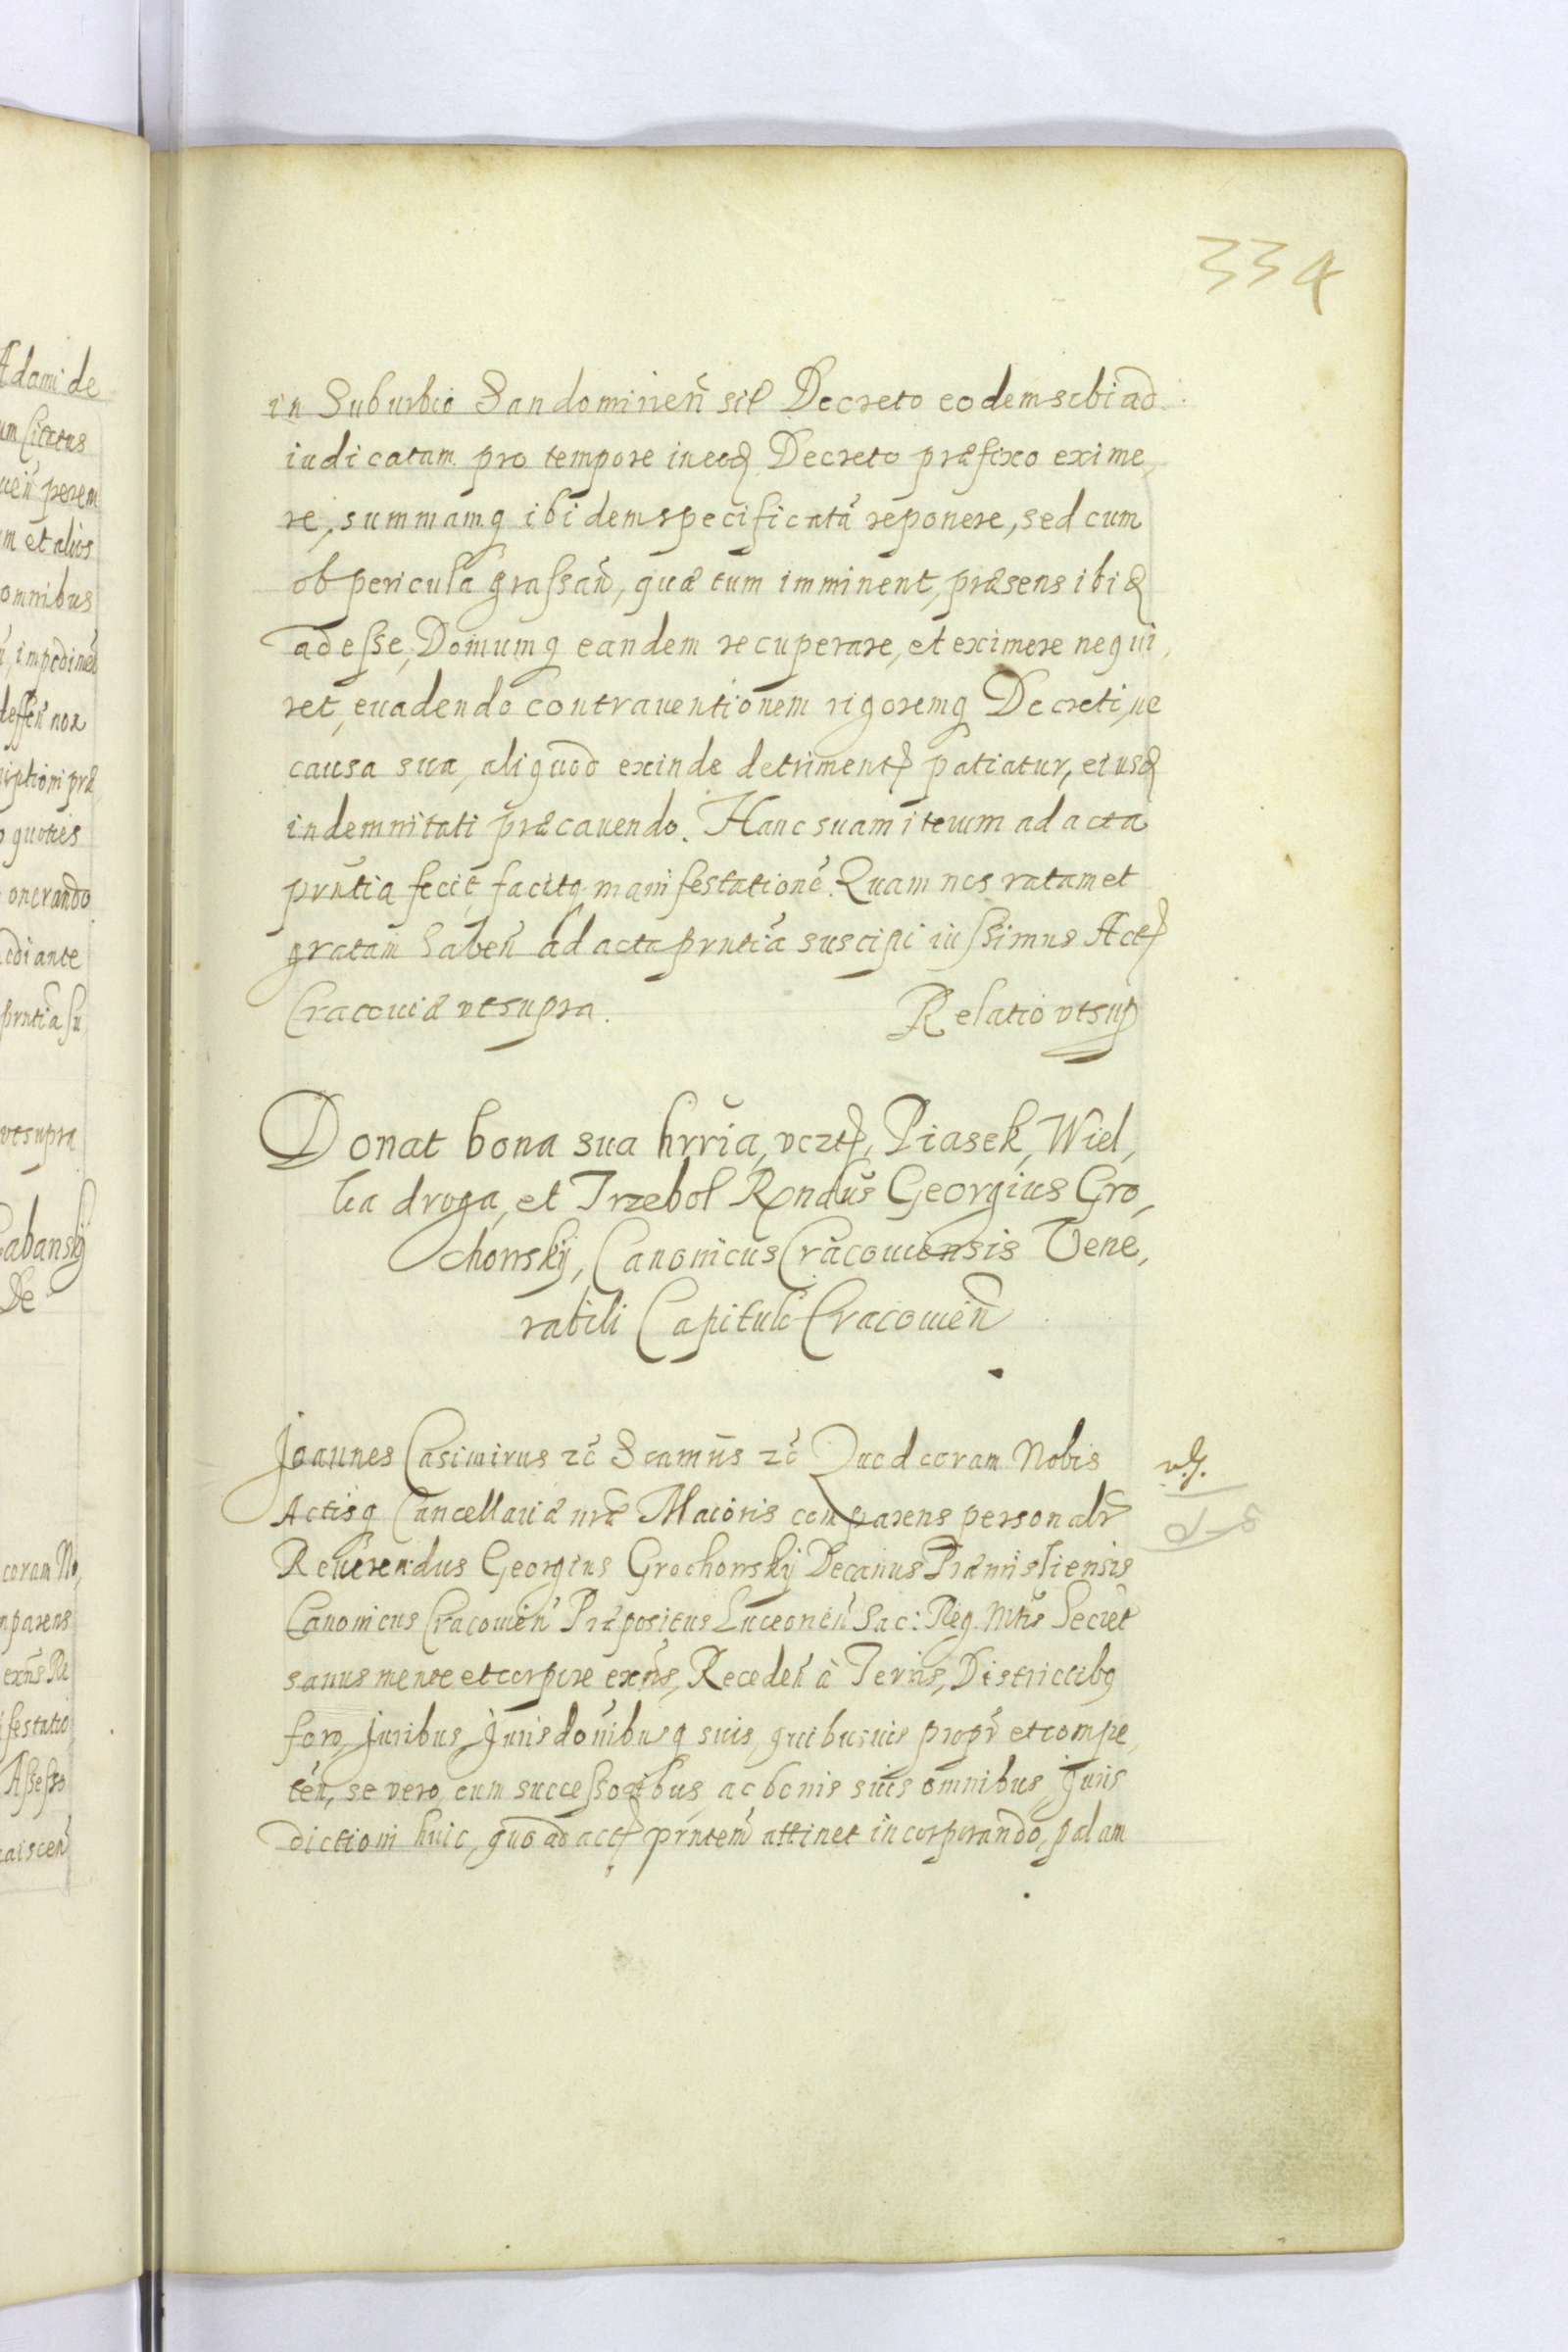 334
in Suburbio Sandomirień sit Decreto eodem sibi ad
iudicatam pro tempore in eoq Decreto præfixo exime,
re, summamq ibidem specificatā reponere, sed cum
ob pericula grassań, quæ tum imminent, præsens ibiq
adesse, Domumq eandem recuperare, et eximere nequi,
ret, euadendo contrauentionem rigoremq Decreti, ne
causa sua, aliquod exinde detriment patiatur, eiusq
indemnitati præcauendo. Hanc suam iterum ad acta
prntia fecit, facitq manifestationē. Quam nos ratam et
gratam haben̄ ad acta prntia suscipi iussimus Act
Cracouiæ vtsupra. Relatio vtsup
Donat bona sua hrria, vczt, Piasek, Wiel,
ka droga, et Trzebol Rndus Georgius Gro,
chowskij, Canonicus Cracouiensis Vene,
rabili Capitulo Cracouien̄
Joannes Casimirus zc̄ Scamus zc̄ Quod coram Nobis
Actisq Cancellariæ nræ Maioris comparens personalr
Reuerendus Georgius Grochowskij Decanus Præmisliensis
Canonicus Cracouien̄ Præpositus Luceorien̄ Sac: Reg. Mtis Secret
sanus mente et corpore exns, Receden̄ à Terris, Districtibq
foro, Juribus, Jurisdonibusq suis, quibusuis propr et compe,
ten̄, se vero, cum successoribus, ac bonis suis omnibus, Juris
dictioni huic, quo ad act prntem attinet incorporando, palam